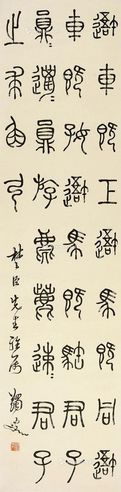 䢩車既工䢩馬既同䢩
車既好䢩馬既駘君子
員邋員斿麀鹿速君子
之求
楚臣先生雅屬 蠲叟